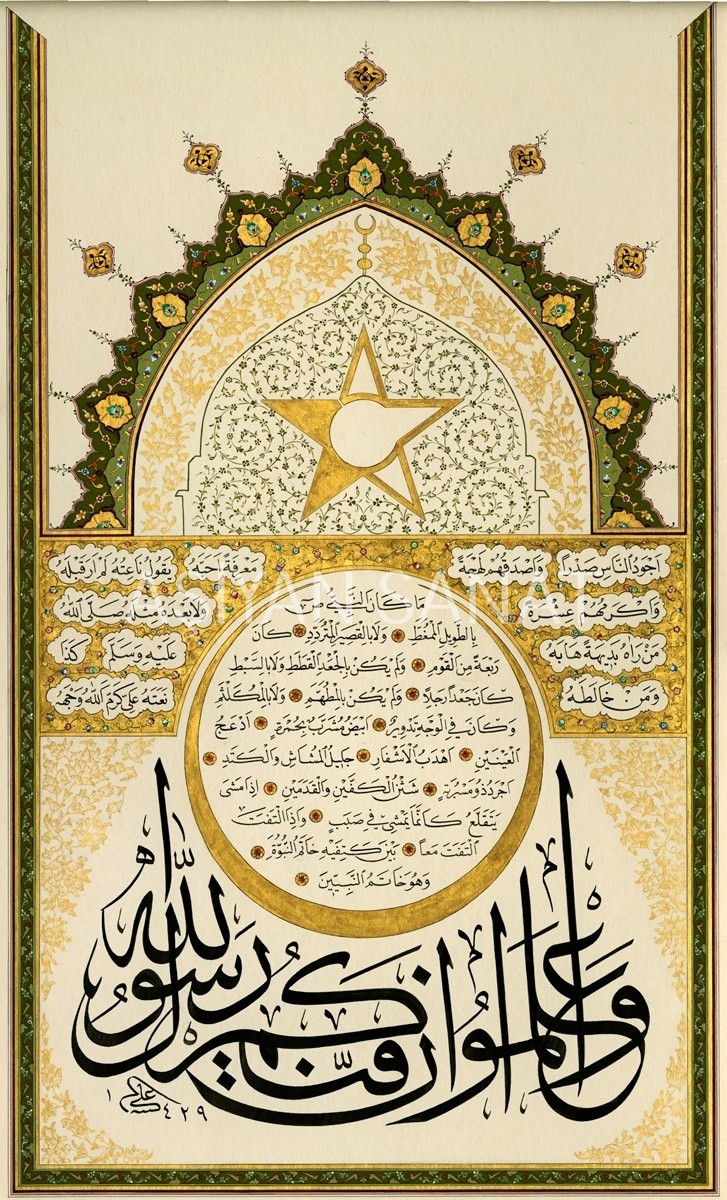 اجود الناس صدرا واصدقهم لهجة
واكرمهم عشرة
من راه بديهة هابه
ومن خالطه
معرفة احبه يقول ناعته لم ار قبله
ولا بعده مثله صلى الله
عليه وسلم كذا
نعته علي كرم الله وجهه
AŞİYAN SANAT
ما كان النبي
بالطويل الممغط ولا بالقصير المتردد كان
ربعة من القوم ولم يكن بالجعد القطط ولا بالسبط
كان جعدا رجلا ولم يكن بالمطهم ولا بالمكلثم
وكان في الوجه تدوير ابيض مشرب بحمرة ادعج
العينين اهدب الاشفار جليل المشاش والكتد
اجرد ذو مسربة شثن الكفين والقدمين اذا مشى
يتقلع كانما يمشي في صبب واذا التفت
التفت معا بين كتفيه خاتم النبوة
وهو خاتم النبيين
واعلموا ان فيكم رسول الله
١٤٢٩